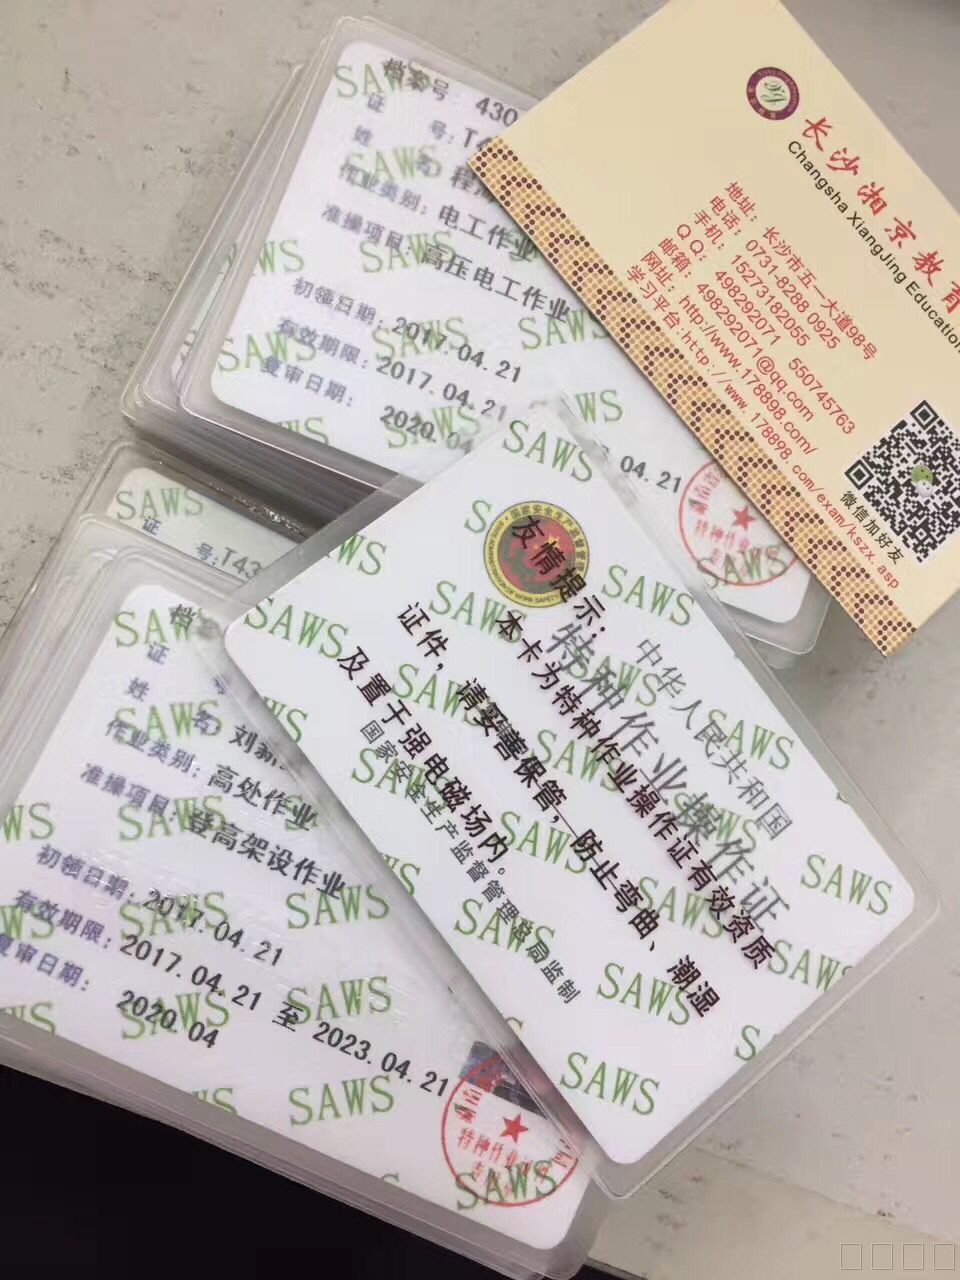 档案号 430
证 号: T4
姓 名 程
作业类别: 电工作业
准操项目: 高压电工作业
初领日期: 2017.04.21
有效期限: 2017.04.21
04.21
复审日期: 2020.04
长沙湘京教育
Changsha XiangJing Education
地址: 长沙市五一大道98号
电话: 0731-8288 0925
手机: 15273182055
QQ: 498292071 550745763
邮箱: 498292071@qq.com
网址: http://www.178898.com/
学习平台: http://www.178898.com/exam/kszx.asp
微信加好友
SAWS
证 号: T43
友情提示:
本卡为特种作业操作证有效资质
证件, 请妥善保管, 防止弯曲、潮湿
及置于强电磁场内。
中华人民共和国
特种作业操作证
国家安全生产监督管理总局监制
档案
证
姓 名 刘
作业类别: 高处作业
准操项目: 登高架设作业
初领日期: 2017.04.21
有效期限: 2017.04.21 至 2023.04.21
复审日期: 2020.04
特种作业